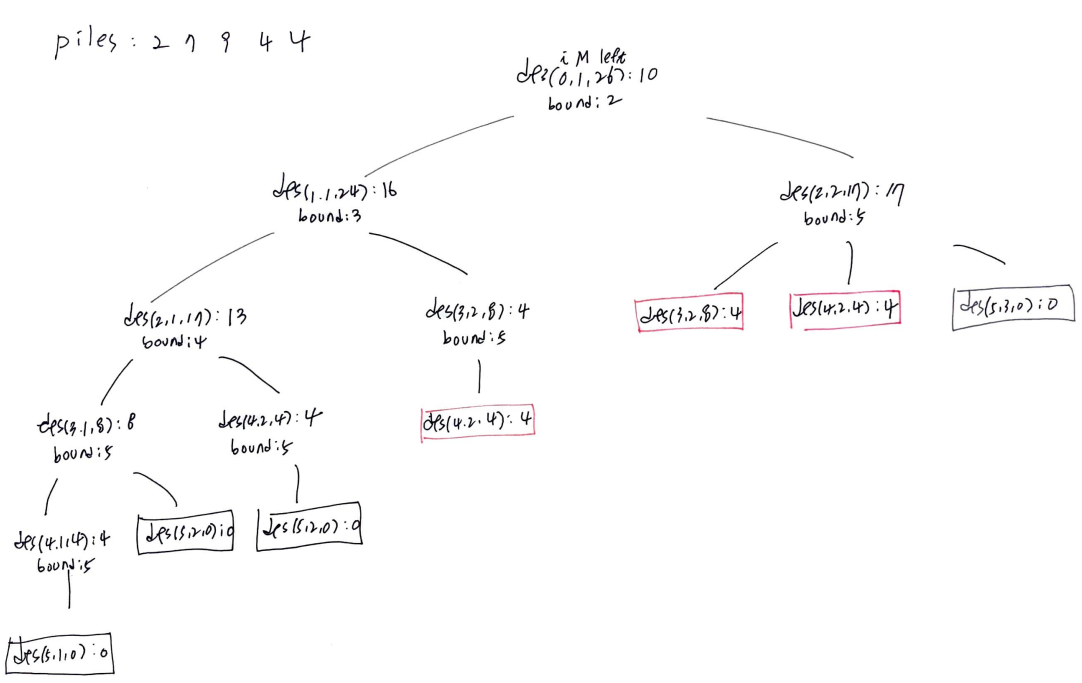 piles: 2 7 9 4 4
i M left
dfs(0,1,26):10
bound:2
dfs(1,1,24):16
bound:3
dfs(2,2,17):17
bound:5
dfs(2,1,17):13
bound:4
dfs(3,2,8):4
bound:5
dfs(3,2,8):4
dfs(4,2,4):4
dfs(5,3,0):0
dfs(3,1,8):8
bound:5
dfs(4,2,4):4
bound:5
dfs(4,2,4):4
dfs(4,1,4):4
bound:5
dfs(5,2,0):0
dfs(5,2,0):0
dfs(5,1,0):0